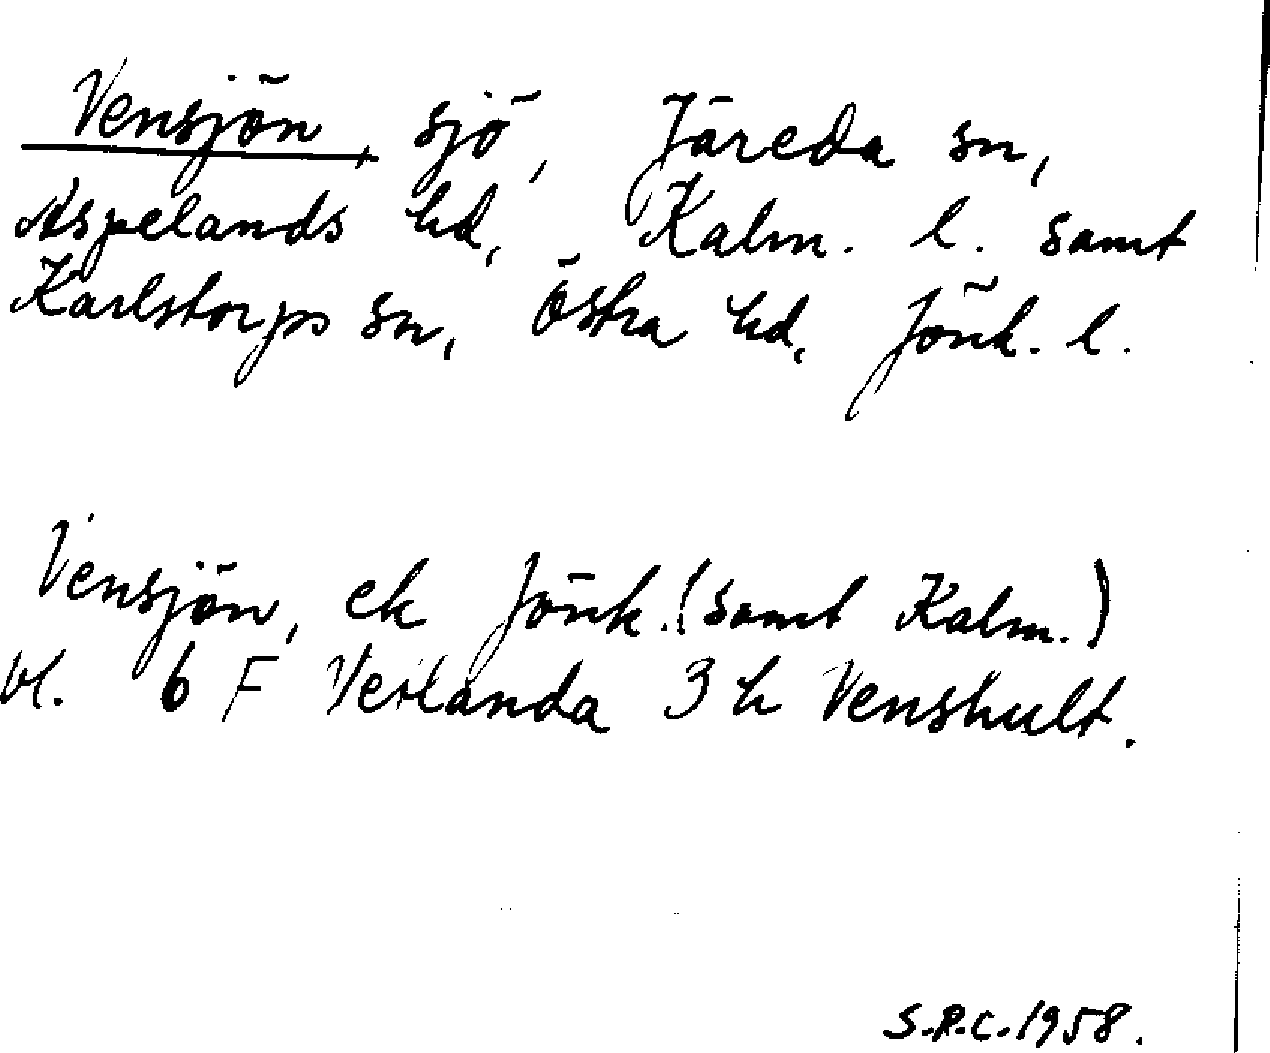 Vensjön, sjö, Järeda sn,
Aspelands hd, Kalm. l. samt
Karlstorps sn, Östra hd, Jönk. l.
Vensjön, ek Jönk. (samt Kalm.)
bl. 6 F Vetlanda 3 h Venshult.
S.R.C. 1958.